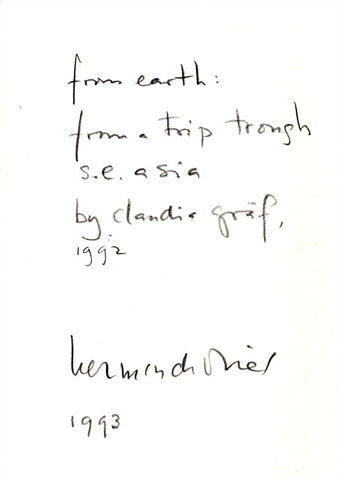 from earth:
from a trip trough
s.e. asia
by claudia gräf,
1992
herman de vries
1993